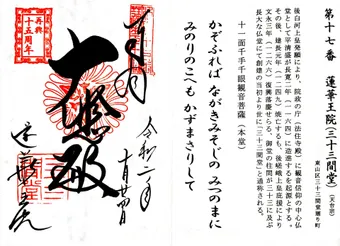 第十七番 蓮華王院(三十三間堂)(天台宗)
東山区三十三間堂廻り町
後白河上皇発願により、院政の庁(法住寺殿)に観音信仰の中心仏
堂として平清盛が長寛二年(一一六四)に造進するを起源とする。
その後、建長元年(一二四九)焼亡するも、後嵯峨上皇庇護により
文永三年(一二六六)復興落慶せらる。御堂の柱間が三十三に及ぶ
長大な仏堂にて創建の当初より世に「三十三間堂」と通称される。
十一面千手千眼観音菩薩(本堂)
かぞふれば ながきみそしの みつのまに
みのりのこへも かずまさりして
令和二年
十月廿四日
奉拝
大悲殿
蓮華王院
再興
十五周年